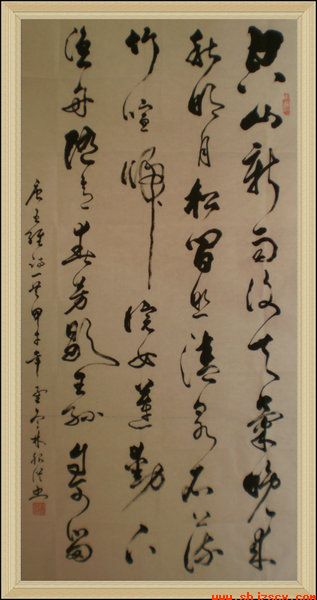 空山新雨後天氣晚來
秋明月松間照清泉石上流
竹喧歸浣女蓮動下
漁舟隨意春芳歇王孫自可留
唐王維詩一首甲午年 林 書